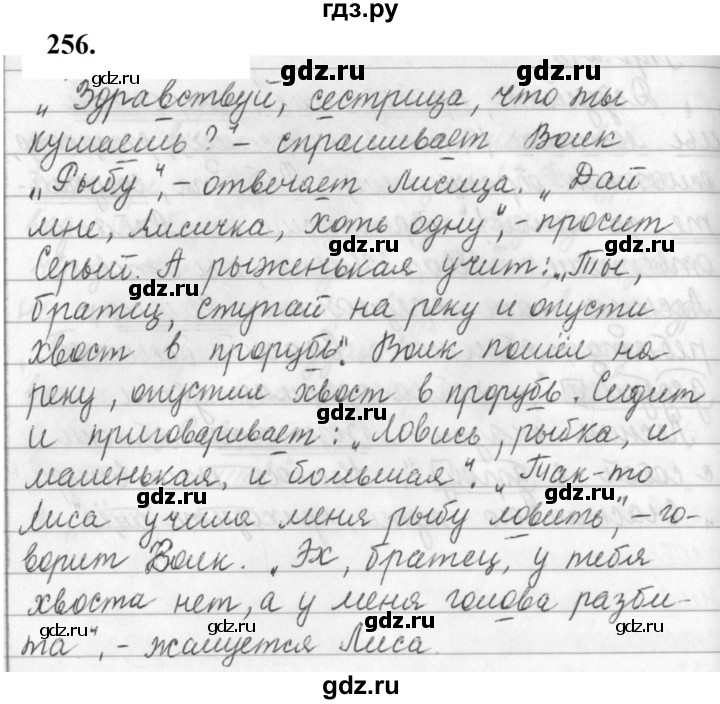 гдз.ру
256.
gdz.ru gdz.ru
„Здравствуй, сестрица, что ты
кушаешь?“ – спрашивает Волк
gdz.ru
„Рыбу“, – отвечает Лисица. „Дай
мне, Лисичка, хоть одну“ – просит
gdz.ru
Серый. А рыженькая учит: „Ты,
gdz.ru
братец, ступай на реку и опусти
хвост в прорубь“. Волк пошёл на
gdz.ru
реку, опустил хвост в прорубь. Сидит
gdz.ru
и приговаривает: „Ловись, рыбка, и
маленькая, и большая“. „Так-то
gdz.ru gdz.ru
Лиса учила меня рыбу ловить“, – го-
gdz.ru
ворит Волк. „Эх, братец, у тебя
хвоста нет, а у меня голова разби-
gdz.ru gdz.ru
та“, – жалуется Лиса.
gdz.ru